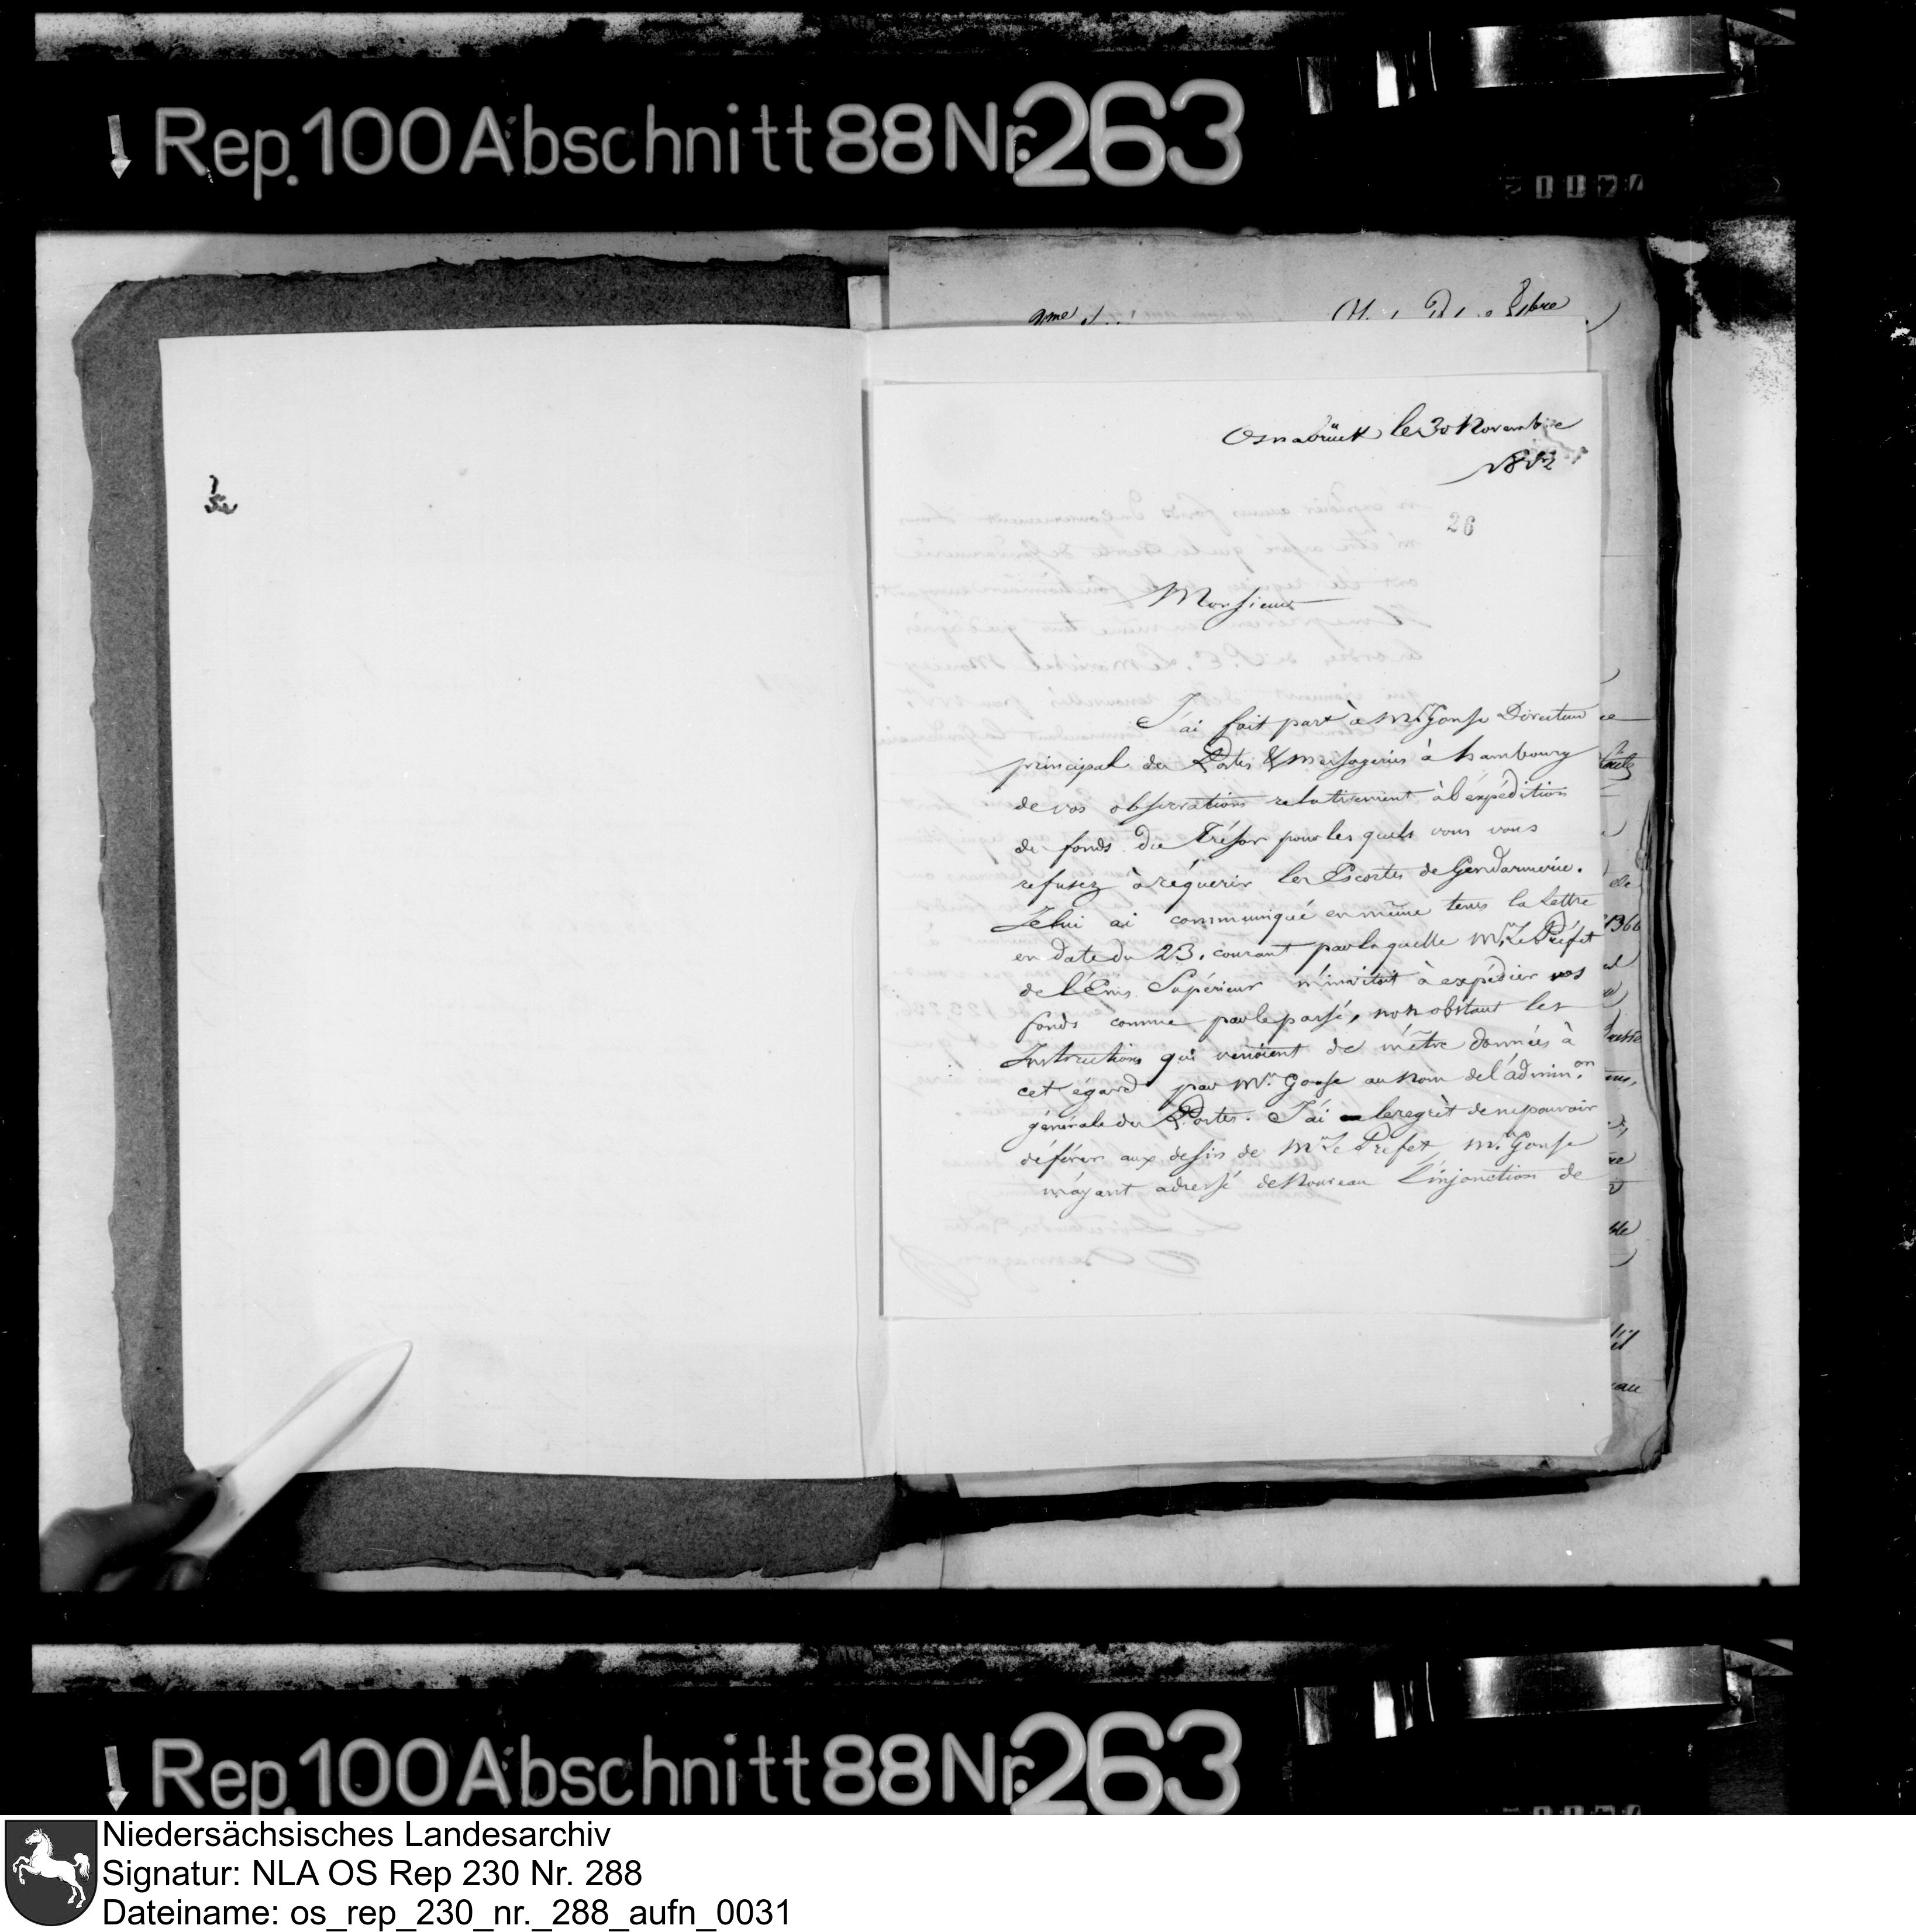 Rep. 100 Abschnitt 88 Nr. 263
Osnabrück le 30 Novembre
1812
26
Monsieur
J'ai fait part à Mr. Gonse Directeur
principal des Postes & Messageries à hambourg
de vos observations relativement à l'éxpédition
de fonds du Trésor pour les quels vous vous
refusez à réquerir les Escortes de Gendarmerie.
Je lui ai communiqué en même tems la lettre
en date du 23. courant par la quelle Mr. Le Préfet
de l'Ems Supérieur m'invitoit à expédier vos
fonds comme par le passé, non obstant les
Instructions qui venoient de m'être données à
cet égard par Mr. Gonse au Nom de l'admin.on
générale des Postes. J'ai le regrèt de ne pouvoir
déférer aux desirs de Mr. Le Prefet Mr. Gonse
m'ayant adressé de Nouveau l'injonction de
Rep. 100 Abschnitt 88 Nr. 263
Niedersächsisches Landesarchiv
Signatur: NLA OS Rep 230 Nr. 288
Dateiname: os_rep_230_nr._288_aufn_0031